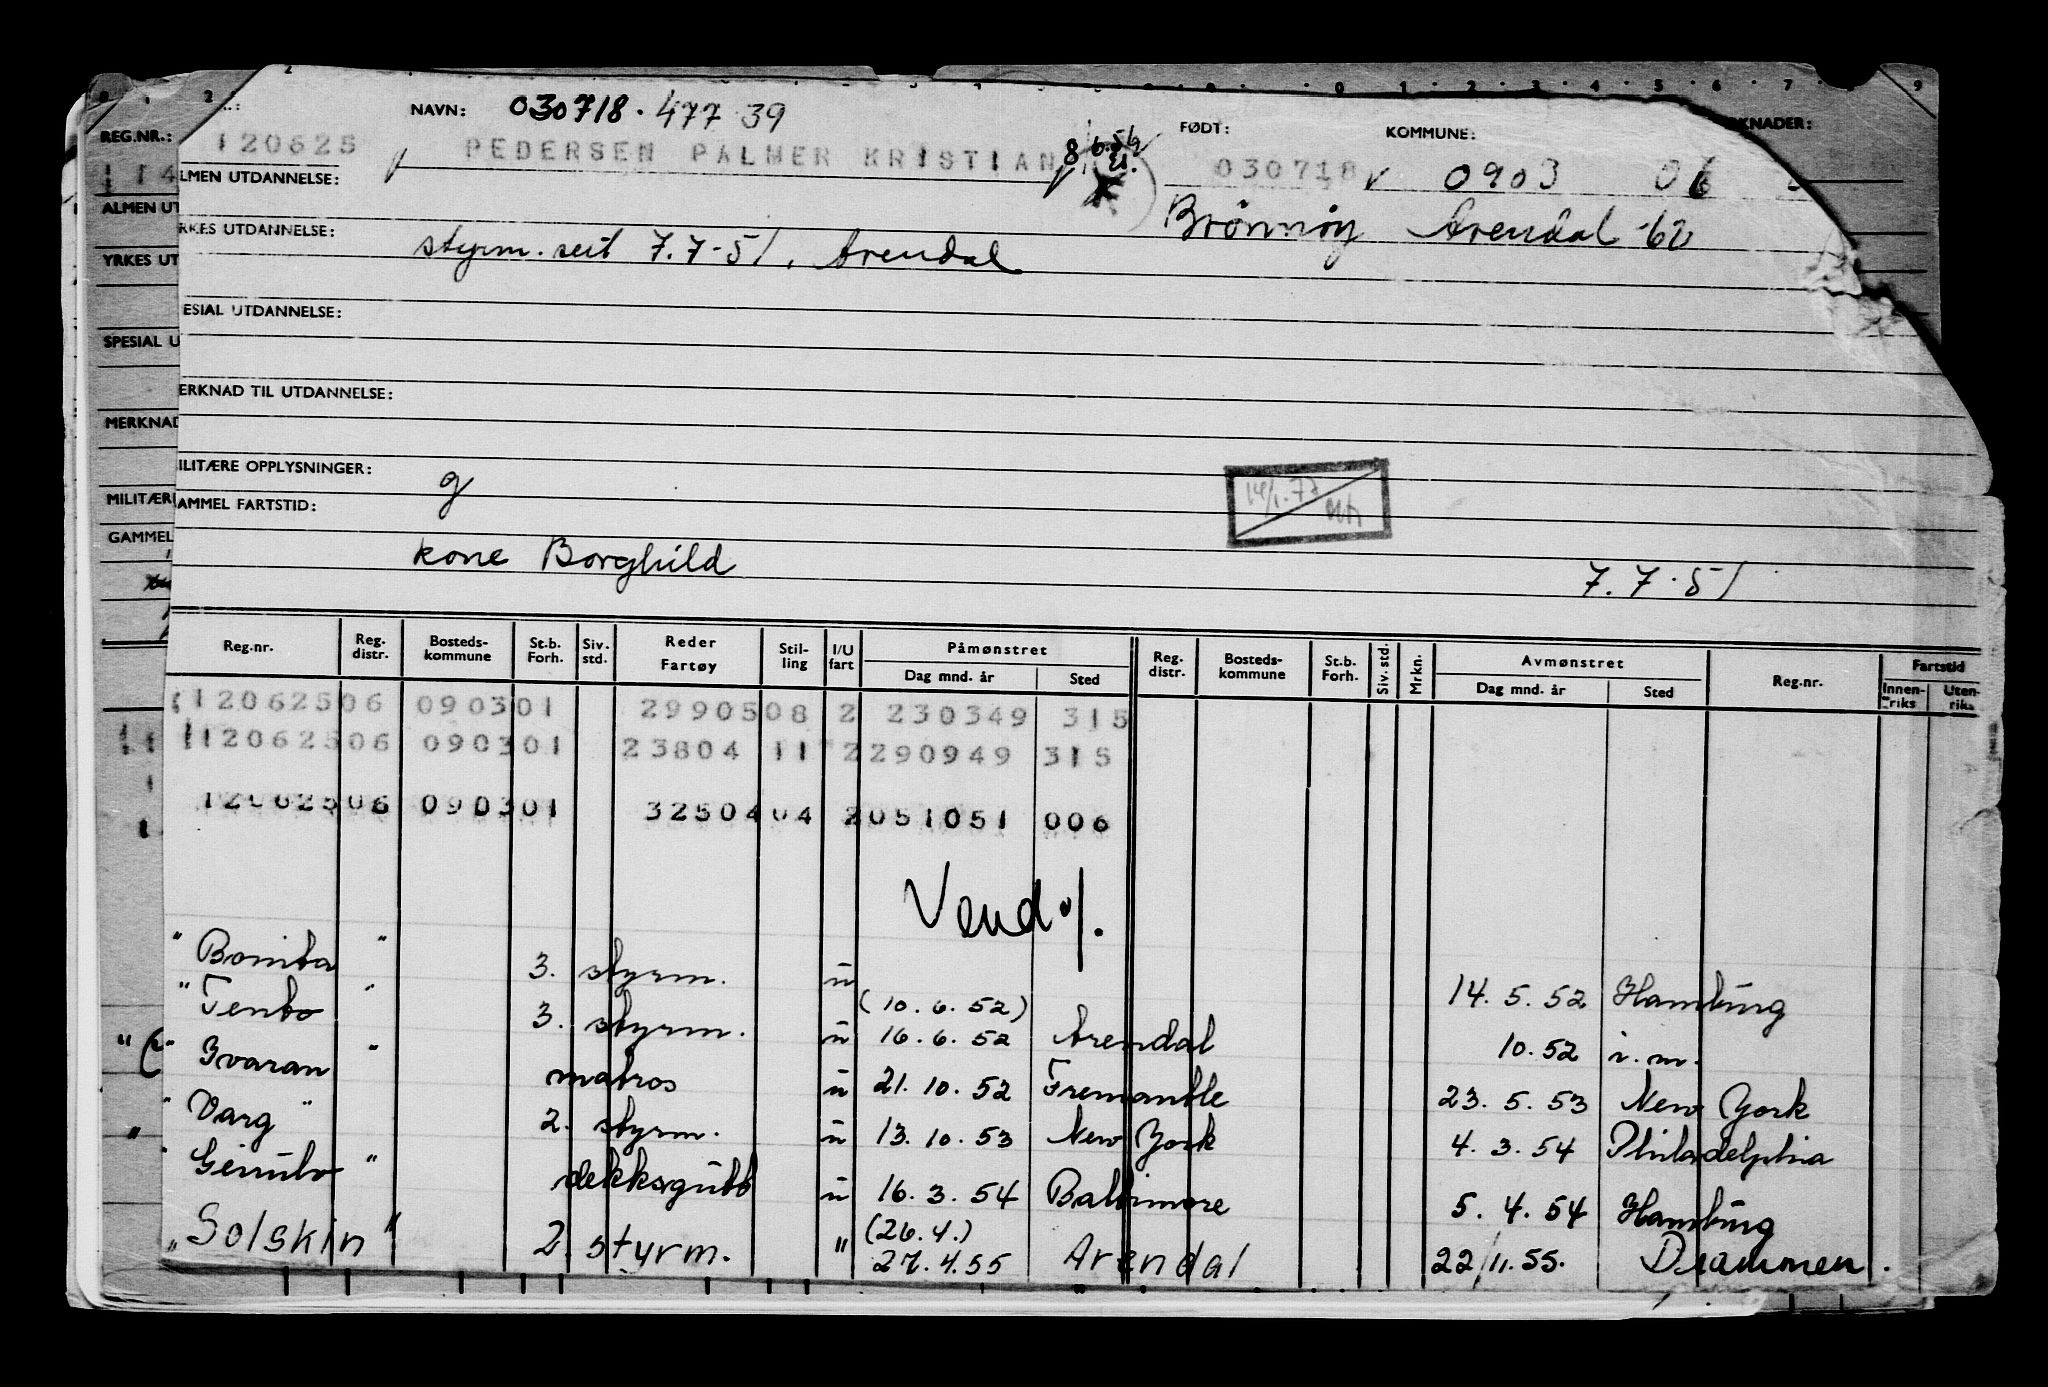 NAVN: 030718. 477 39
FØDT: KOMMUNE: KNADER:
REG.NR.: 120625 PEDERSEN PALMER KRISTIAN 8.6.56 030718 0903
114
LMEN UTDANNELSE: Brönnöy Arendal 62
ALMEN UT
RKES UTDANNELSE: styrm. sert 7.7-51, Arendal
YRKES UT
ESIAL UTDANNELSE:
SPESIAL U
ERKNAD TIL UTDANNELSE:
MERKNAD
ILITÆRE OPPLYSNINGER: g 14/1.77
MILITÆRE
AMMEL FARTSTID:
GAMMEL
kone Borghild 7.7.51
Reg.nr. Reg. distr. Bosteds-kommune St.b. Forh. Siv. std. Reder Fartøy Stil-ling I/U fart Påmønstret Dag mnd. år Sted Reg. distr. Bosteds-kommune St.b. Forh. Siv. std. Mrkn. Avmønstret Dag mnd. år Sted Reg.nr. Fartstid Innen-riks Uten-riks
12062506 090301 2990508 2 230349 315
12062506 090301 23804 11 2290949 315
12062506 090301 3250404 2051051 006
Vend ./.
"Bonita" 3. styrm. u 14.5.52 Hamburg
"Tento" 3. styrm. u (10.6.52) 16.6.52 Arendal 10.52 i.m.
"Ivaran" matros u 21.10.52 Fremantle 23.5.53 New York
"Varg" 2. styrm. u 13.10.53 New York 4.3.54 Philadelphia
"Gimbo" dekksgutt u 16.3.54 Baltimore 5.4.54 Hamburg
"Solskin" 2. styrm. " (26.4.) 27.4.55 Arendal 22/11.55. Drammen.